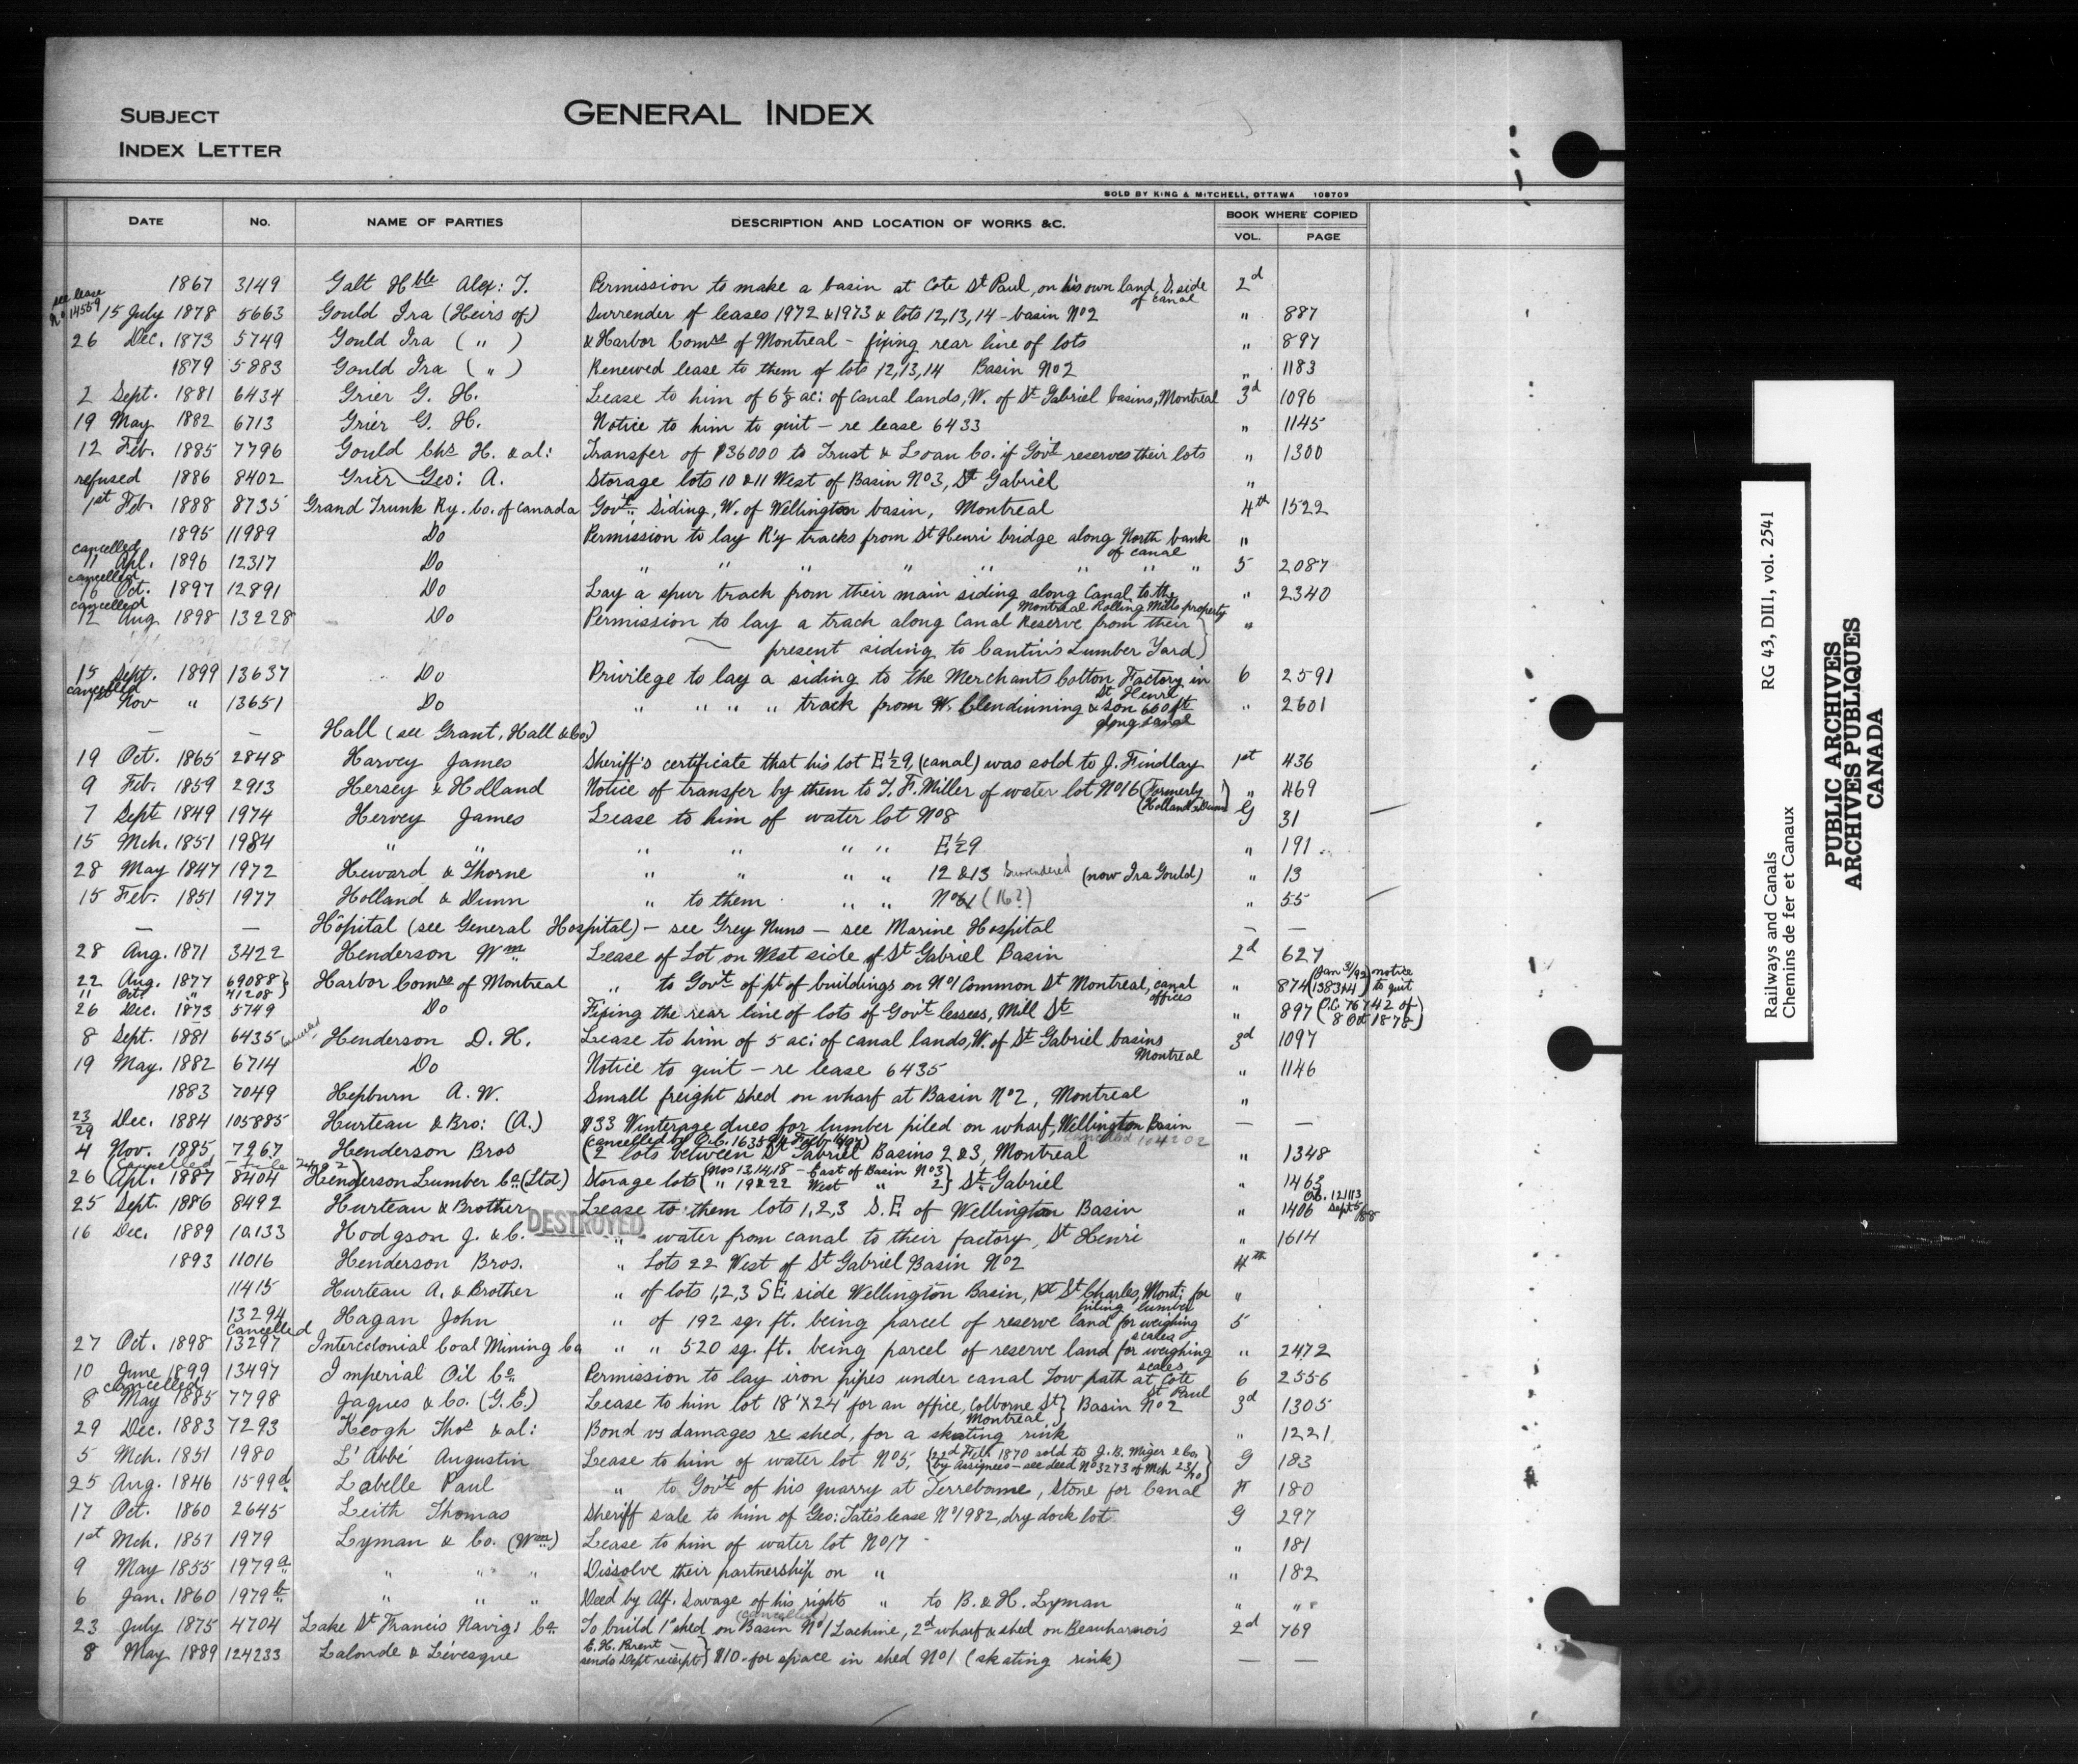 SUBJECT
INDEX LETTER
GENERAL INDEX
SOLD BY KING & MITCHELL, OTTAWA 108709
DATE No. NAME OF PARTIES DESCRIPTION AND LOCATION OF WORKS &C. BOOK WHERE COPIED
VOL. PAGE
1867 3149 Galt Hble Alex: T. Permission to make a basin at Cote St Paul, on his own land, S. side of canal 2d
see lease No 14559 15 July 1878 5663 Gould Ira (Heirs of) Surrender of leases 1972 & 1973 & lots 12, 13, 14 - basin No 2 " 887
26 Dec. 1873 5749 Gould Ira ( " ) & Harbor Comrs of Montreal - fixing rear line of lots " 897
1879 5883 Gould Ira ( " ) Renewed lease to them of lots 12, 13, 14 Basin No 2 " 1183
2 Sept. 1881 6434 Grier G. H. Lease to him of 6 1/2 ac: of canal lands, W. of St Gabriel basins, Montreal 3d 1096
19 May 1882 6713 Grier G. H. Notice to him to quit - re lease 6433 " 1145
12 Feb. 1885 7796 Gould Chs H. & al: Transfer of $36000 to Trust & Loan Co. if Govt reserves their lots " 1300
refused 1886 8402 Grier Geo: A. Storage lots 10 & 11 West of Basin No 3, St Gabriel "
1st Feb. 1888 8735 Grand Trunk Ry. Co. of Canada Govt. Siding, W. of Wellington basin, Montreal 4th 1522
1895 11989 Do Permission to lay R'y tracks from St Henri bridge along North bank of canal "
cancelled 11 Apl. 1896 12317 Do " " " " " " " 5 2087
cancelled 16 Oct. 1897 12891 Do Lay a spur track from their main siding along Canal to the Montreal Rolling Mills property " 2340
cancelled 12 Aug 1898 13228 Do Permission to lay a track along Canal Reserve from their "
present siding to Cantin's Lumber Yard)
15 Sept. 1899 13637 Do Privilege to lay a siding to the Merchants Cotton Factory in St Henri 6 2591
cancelled 1st Nov " 13651 Do " " " " track from W. Clendinning & Son 660 ft along canal " 2601
— — Hall (see Grant, Hall & Co)
19 Oct. 1865 2848 Harvey James Sheriff's certificate that his lot E 1/2 9, (canal) was sold to J. Findlay 1st 436
9 Feb. 1859 2913 Hersey & Holland Notice of transfer by them to T. F. Miller of water lot No 16 (Formerly Holland & Dunn) " 469
7 Sept 1849 1974 Hervey James Lease to him of water lot No 8 G 31
15 Mch. 1851 1984 " " " " " " E 1/2 9 " 191
28 May 1847 1972 Heward & Thorne " " " " 12 & 13 Surrendered (now Ira Gould) " 13
15 Feb. 1851 1977 Holland & Dunn " to them " " No 61 (16?) " 55
— — Hôpital (see General Hospital) - see Grey Nuns - see Marine Hospital — —
28 Aug. 1871 3422 Henderson Wm Lease of Lot on West side of St Gabriel Basin 2d 627
22 Aug. 1877 69088 } Harbor Comrs of Montreal " to Govt of pt of buildings on No 1 Common St Montreal, canal offices " 874 (Jan 31/92 notice 138314) to quit
11 Oct " 41208 )
26 Dec. 1873 5749 Do Fixing the rear line of lots of Govt lessees, Mill St " 897 (O.C. 76742 of 8 Oct 1878)
8 Sept. 1881 6435 Henderson D. H. Lease to him of 5 ac: of canal lands, W. of St Gabriel basins Montreal 3d 1097
19 May. 1882 6714 Do Notice to quit - re lease 6435 " 1146
1883 7049 Hepburn A. W. Small freight shed on wharf at Basin No 2, Montreal "
23/29 Dec. 1884 105885 Hurteau & Bro: (A.) $33 Winterage dues for lumber piled on wharf, Wellington Basin — —
4 Nov. 1885 7267 Henderson Bros 2 lots between St Gabriel Basins 2 & 3, Montreal " 1348
26 Apl. 1887 8404 Henderson Lumber Co (Ltd) Storage lots { Nos 13,14,18 - East of Basin No 3 " 19 & 22 West " 2 } St Gabriel " 1463
25 Sept. 1886 8492 Hurteau & Brother Lease to them lots 1, 2, 3 S. E of Wellington Basin " 1406
DESTROYED
16 Dec. 1889 10133 Hodgson J. & C. " water from canal to their factory, St Henri " 1614
1893 11016 Henderson Bros. " Lots 22 West of St Gabriel Basin No 2 4th
11415 Hurteau A. & Brother " of lots 1, 2, 3 SE side Wellington Basin, Pt St Charles, Mont: for piling lumber "
13294 Hagan John " of 192 sq. ft. being parcel of reserve land for weighing scales 5
27 Oct. 1898 Cancelled 13297 Intercolonial Coal Mining Co " " 520 sq. ft. being parcel of reserve land for weighing scales " 2472
10 June 1899 13497 Imperial Oil Co. Permission to lay iron pipes under canal Tow path at Cote St Paul 6 2556
cancelled 8 May 1885 7798 Jaques & Co. (G. E.) Lease to him lot 18' X 24' for an office, Colborne St Montreal } Basin No 2 3d 1305
29 Dec. 1883 7293 Keogh Thos & al: Bond vs damages re shed, for a skating rink " 1221
5 Mch. 1851 1980 L'Abbé Augustin Lease to him of water lot No 5, { 22d Feb 1870 sold to J. B. Miger & Co. by Assignees - see deed No 3273 of Mch 23/70 } G 183
25 Aug. 1846 1599d Labelle Paul " to Govt of his quarry at Terrebonne, Stone for Canal F 180
17 Oct. 1860 2645 Leith Thomas Sheriff sale to him of Geo: Tate's lease No 1982, dry dock lot G 297
1st Mch. 1851 1979 Lyman & Co. (Wm) Lease to him of water lot No 17 " 181
9 May 1855 1979a " " " Dissolve their partnership on " " 182
6 Jan. 1860 1979b " " " Deed by Alf. Savage of his rights " to B. & H. Lyman " " "
23 July 1875 4704 Lake St Francis Navig: Co. To build 1st shed on Basin No 1 Lachine, (cancelled) 2d wharf & shed on Beauharnois 2d 769
8 May 1889 124233 Lalonde & Lévesque E. H. Parent sends Dept receipt } $10. for space in shed No 1 (skating rink) — —
Railways and Canals RG 43, DIII, vol. 2541
Chemins de fer et Canaux
PUBLIC ARCHIVES
ARCHIVES PUBLIQUES
CANADA